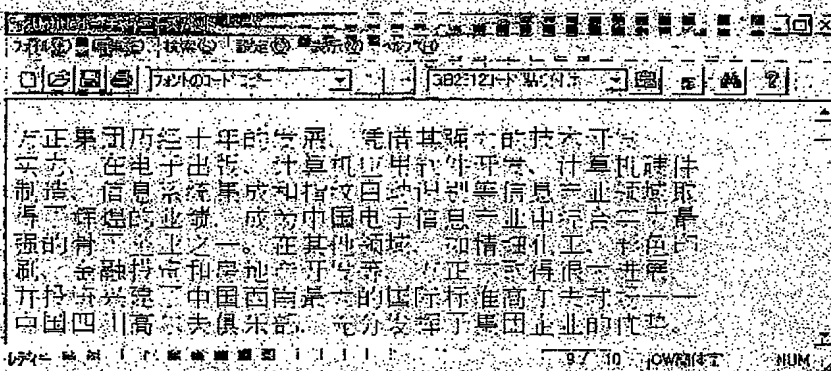 ファイル(F) 編集(E) 検索(S) 設定(O) 表示(V) ヘルプ(H)
フォントのコード GB2312コード
方正集团历经十年的发展、凭借其强大的技术开发
实力、在电子出版、计算机应用软件开发、计算机硬件
制造、信息系统集成和指纹自动识别等信息产业领域取
得了辉煌的业绩、成为中国电子信息产业中综合实力最
强的骨干企业之一。在其他领域、如精细化工、彩色印
刷、金融投资和房地产开发等、方正亦取得很大进展、
并投资兴建了中国西南最大的国际标准高尔夫球场——
中国四川高尔夫俱乐部、充分发挥了集团企业的优势。
レディー 9 / 10 NUM